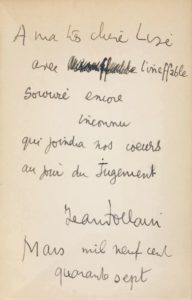 A ma très chère Lisé
avec l'ineffable
sourire encore
inconnu
qui joindra nos coeurs
au jour du Jugement
Jean Follain
Mars mil neuf cent
quarante sept